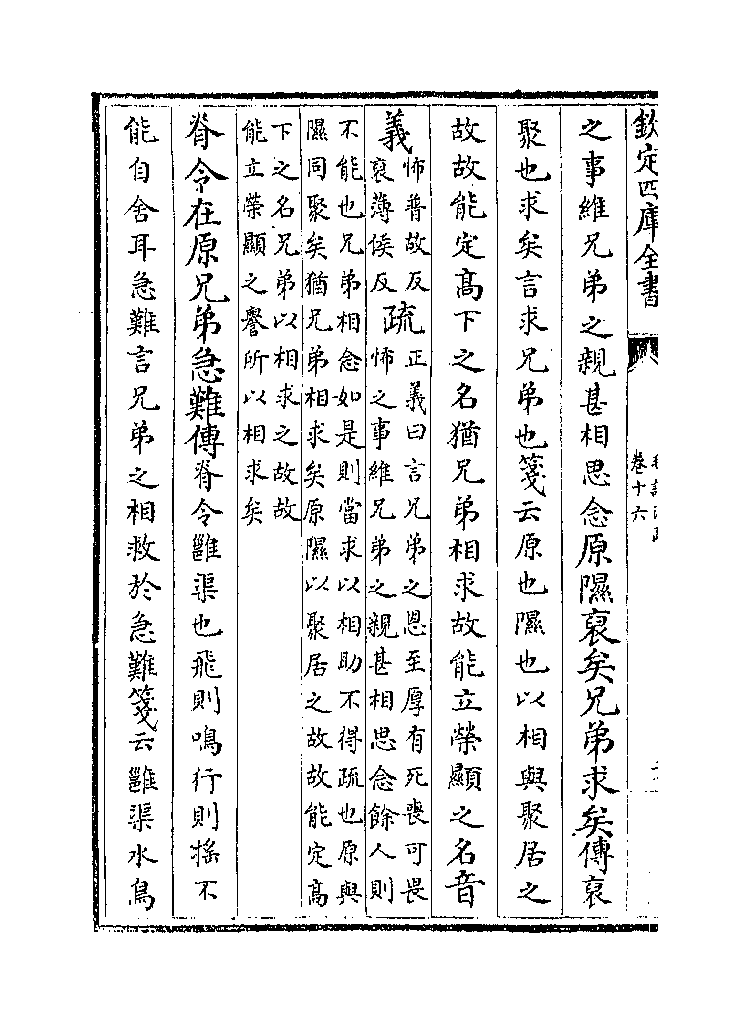 欽定四庫全書
卷十六
之事維兄弟之親甚相思念原隰裒矣兄弟求矣傳裒
聚也求矣言求兄弟也箋云原也隰也以相與聚居之
故故能定高下之名猶兄弟相求故能立榮顯之名音
義
怖普故反
裒薄侯反
疏
正義曰言兄弟之恩至厚有死喪可畏
怖之事維兄弟之親甚相思念餘人則
不能也兄弟相念如是則當求以相助不得疏也原與
隰同聚矣猶兄弟相求矣原隰以聚居之故故能定高
下之名兄弟以相求之故故
能立榮顯之譽所以相求矣
脊令在原兄弟急難傳脊令雝渠也飛則鳴行則搖不
能自舍耳急難言兄弟之相救於急難箋云雝渠水鳥